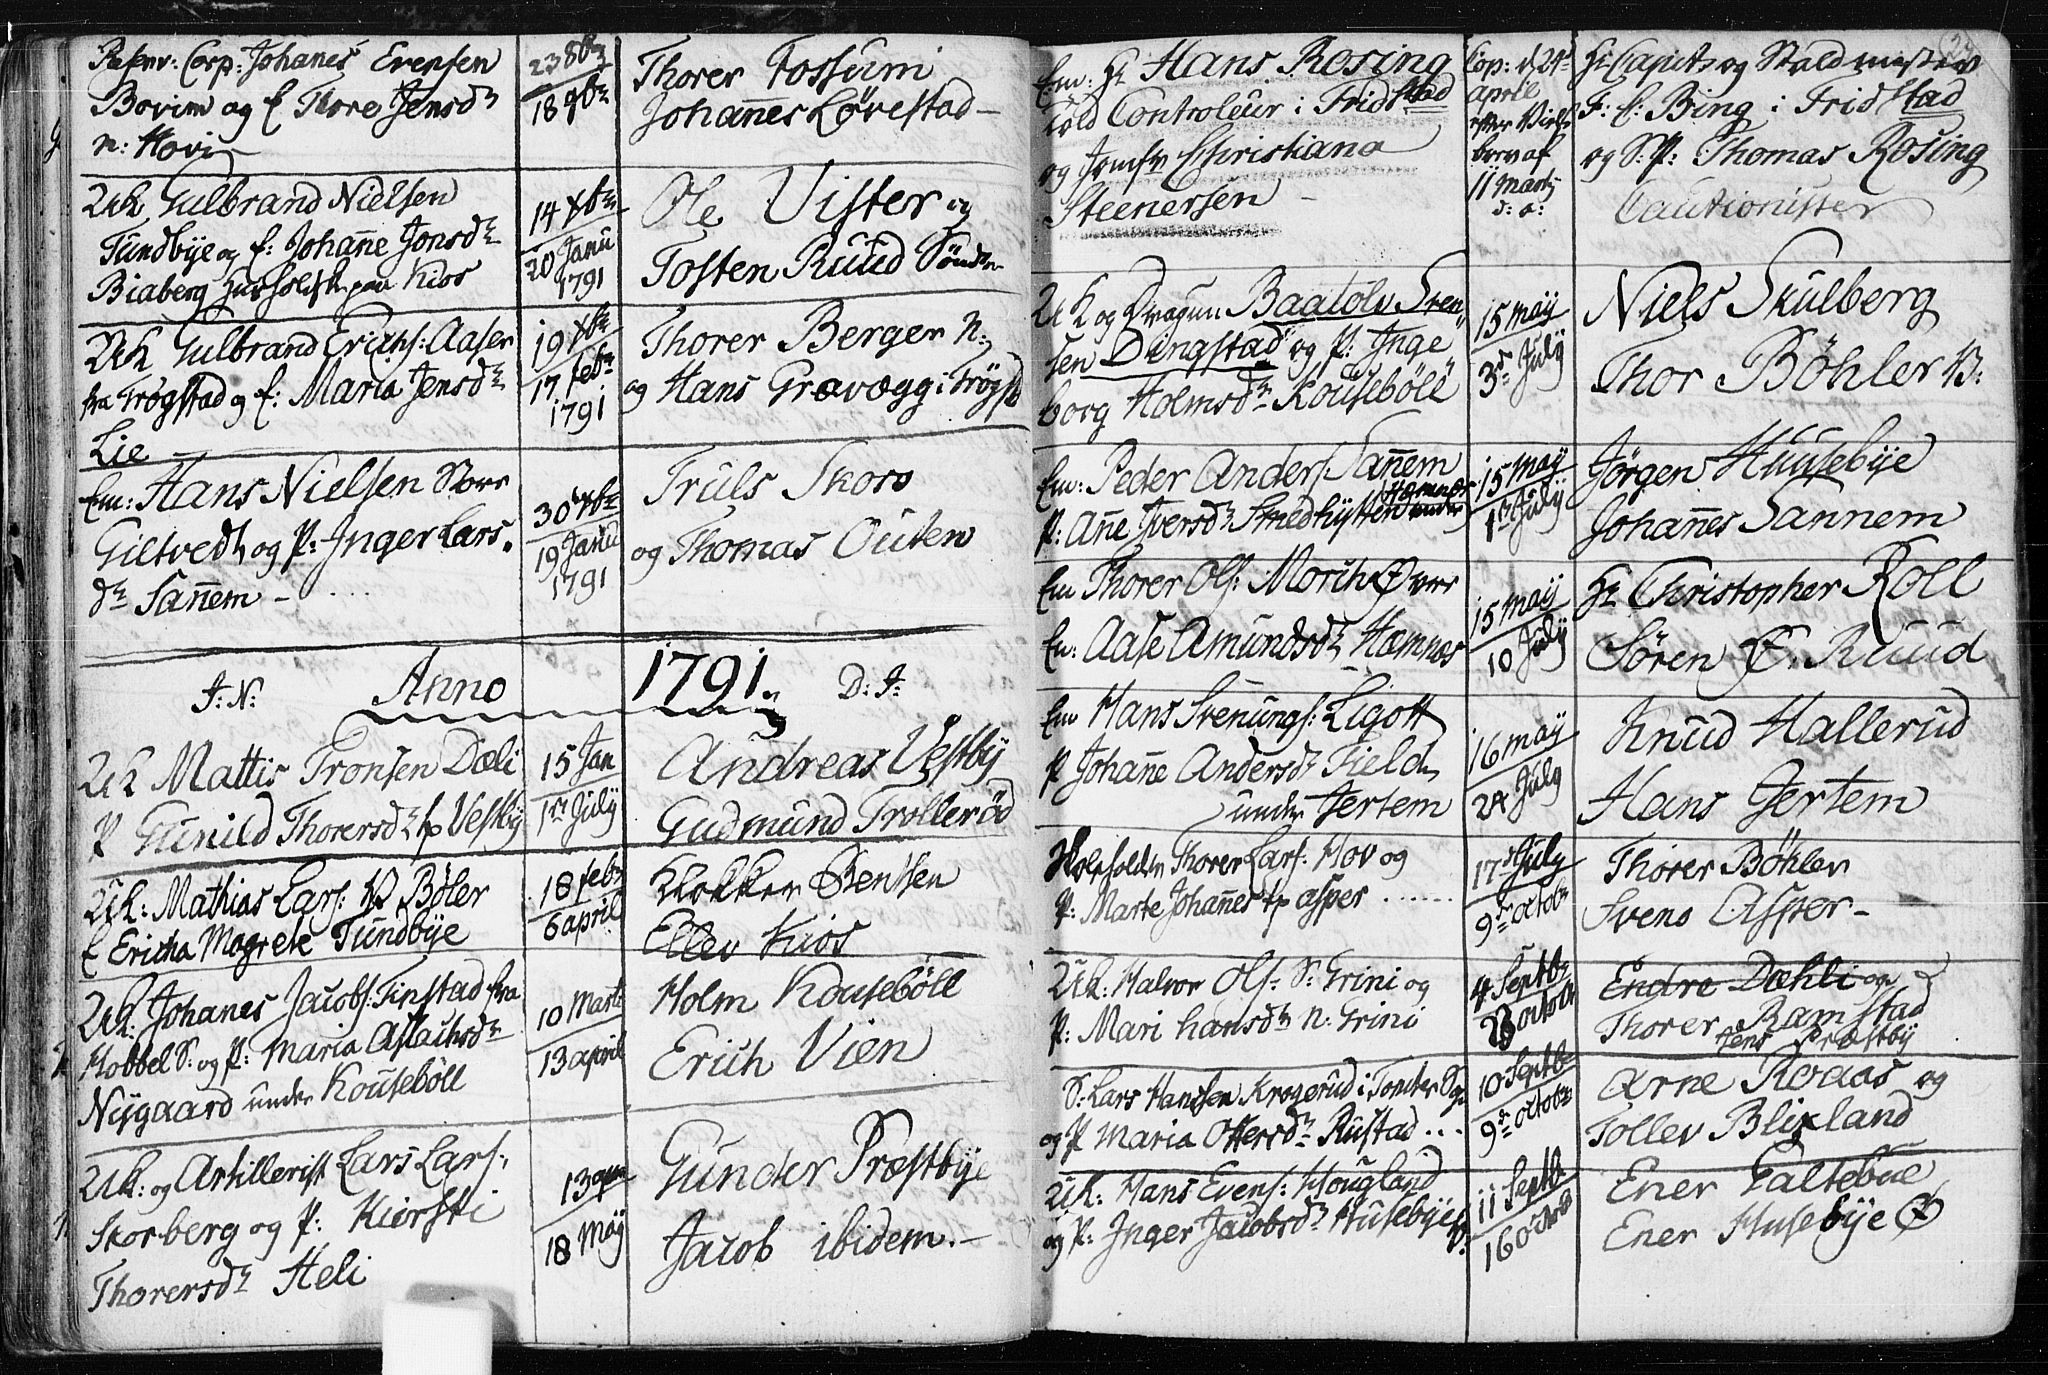 Reserv: Corp: Johanes Evensen
Bovim og E Thore Jensdr
n: Hovi
23 8br
18 9br
Thorer Fossum
Johannes Løvestad
UK Gulbrand Nielsen
Tundbye og E: Johanne Jonsdr
Biaberg huusholdsk paa Kios
14 Xbr
20 Janu
1791
Ole Vister og
Tosten Ruud Sönder
UK Gulbrand Erichs: Aaser
fra Trøgstad og E: Maria Jensdr
Lie
19 Xbr
17 febr
1791
Thorer Berger N:
og Hans Gravægg i Trøgst
Em: Hans Nielsen Store
Giltvedt og P: Inger Lars
dr Sannem
30 Xbr
19 Janu
1791
Truls Skoro
og Thomas Outen
J: N: Anno 1791 D: J:
UK Mattis Tronsen Dæli
P Gunild Thorersdr fr Vestby
15 Jan
1st July
Andreas Vestby
Gudmund Trollerød
UK: Mathias Lars: V Bøler
E Ericha Magrete Tundbye
18 febr
6 april
Klokker Bentsen
Ellev Kios
UK: Johanes Jacobs: Finstad fra
Hobbel S: og P: Maria Aslachsdr
Nygaard under Kousebøll
10 Marti
13 april
Holm Kousebøll
Erich Vien
UK: og Artillerist Lars Lars:
Skorberg og P: Kiersti
Thorersdr Heli
13 apr
18 May
Gunder Præstbye
Jacob ibidem
Em: Hr Hans Rosing
Told Controleur i Fridstad
og Jomfr Christiana
Steenersen
Cop: d 24
April
efter Viels
brev af
11 Marty
d: a:
Hr Capit og Staldmester
F: C: Bing i Fridstad
og S: P: Thomas Rosing
Cautionister
UK og Dragun Baatolv Sven
sen Dingstad og P: Inge
borg Holmsdr Kousebölé
15 May
3 July
Niels Skulberg
Thor Böhler V:
Em: Peder Anders: Sannem
P: Anne Iversdr Smedhytten under Hæmnæs
15 May
1st July
Jörgen Huusebye
Johannes Sannem
Em Thorer Ols: Morch Ø vre
Em: Aase Amundsdr Hæmnæs
15 May
10 July
Hr Christopher Roll
Sören Ø: Ruud
Em Hans Svenungs: Ligott
P Johanne Andersdr Field
under Jertem
16 May
24 July
Knud Hallerud
Hans Gertem
Thorer Lars: Hov og
P: Marte Johannes fr Asper
17 July
9 octobr
Thorer Böhler
Sveno Asper
UK: Halvor Ols: S: Grini og
P: Mari hansdr N: Grini
4 Septbr
23 octobr
Endre Dæhli og
Thorer Ramstad
Jens Præstby
S: Lars Hansen Krogerud i Tomter Sogn
og P Maria Ottersdr Rustad
10 Septbr
9 octobr
Arne Roaas og
Tollev Blixland
UK: Hans Evens: Hougland
og P: Inger Jacobsdr Husebye V:
11 Septbr
16 Octobr
Ener Galtebue
Ener Husebye Ø